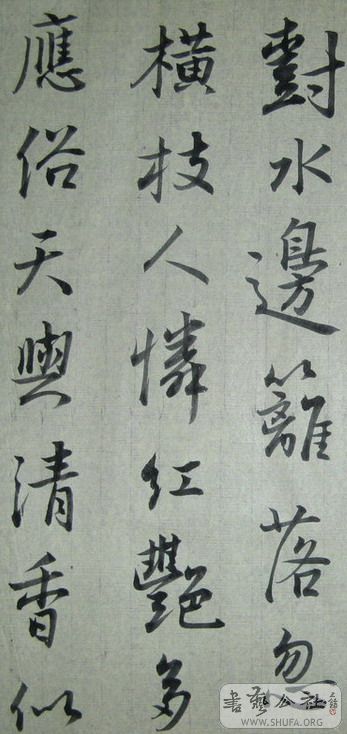 對水邊籬落忽
橫枝人憐紅艷多
應俗天與清香似
書藝公社
WWW.SHUFA.ORG